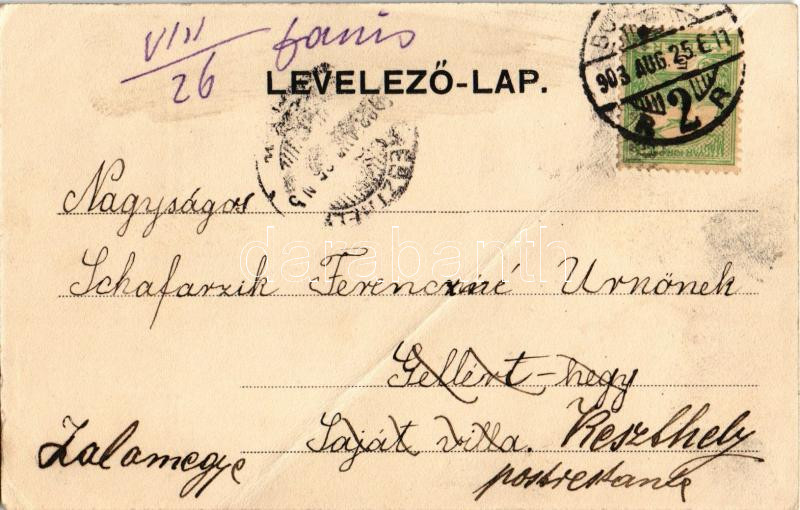 VIII
26
LEVELEZŐ-LAP.
903 AUG. 25 E 11
2
R R
Nagyságos
darabanth
Schafarzik Ferenczné Urnőnek
Gellért-hegy
Saját villa. Keszthely
Zalamegye
postrestante